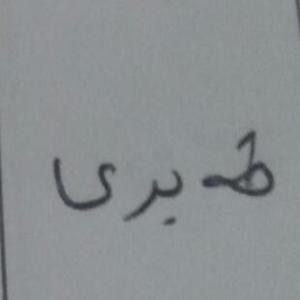 طه بری